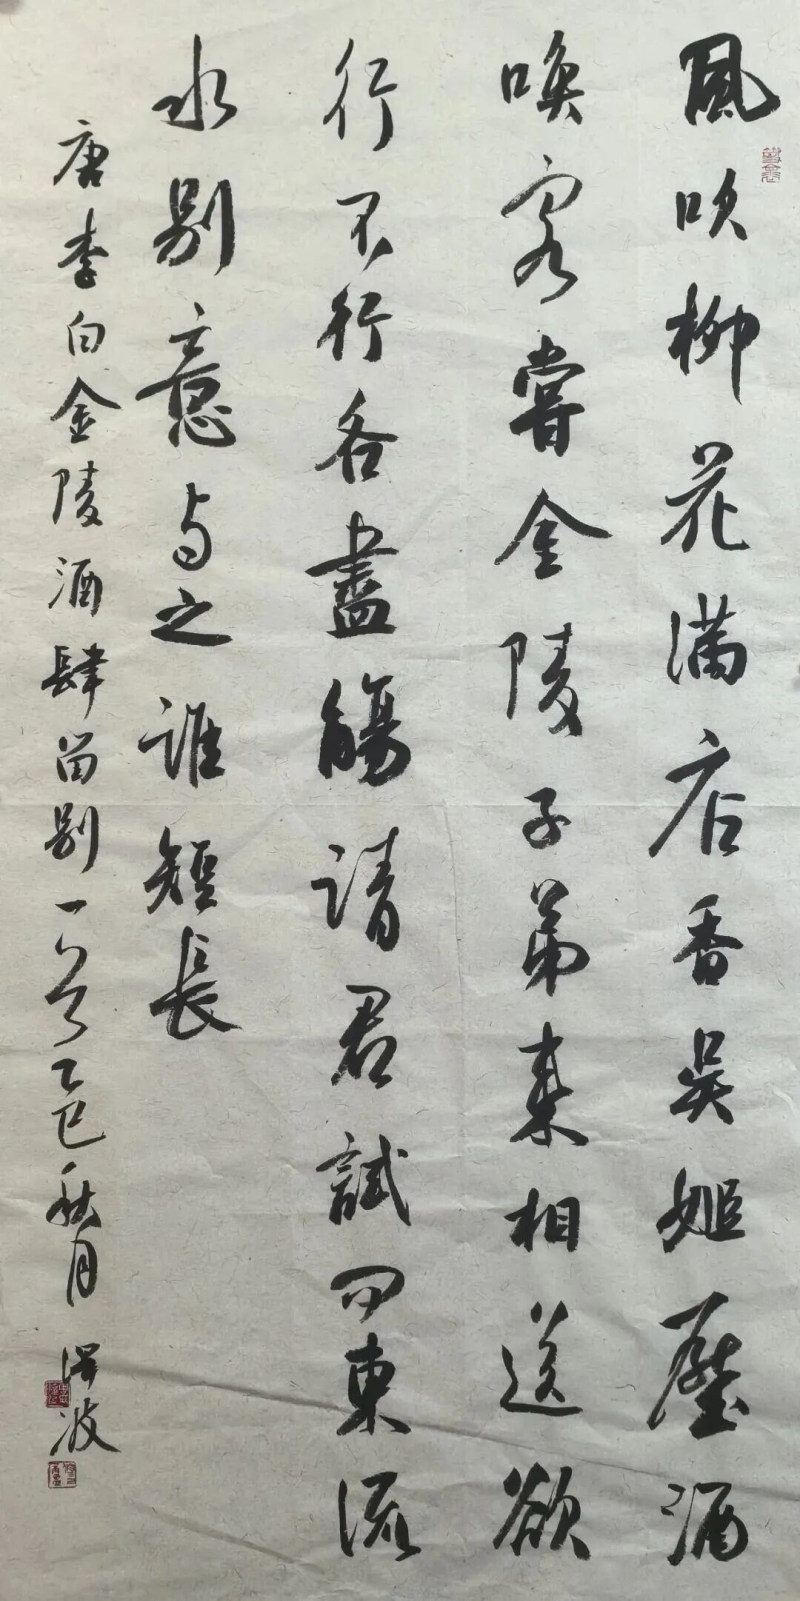 風吹柳花满店香吴姬壓酒
唤客嘗金陵子弟来相送欲
行不行各盡觴請君試问東流
水别意与之誰短長
唐李白金陵酒肆留别一首乙巳秋月